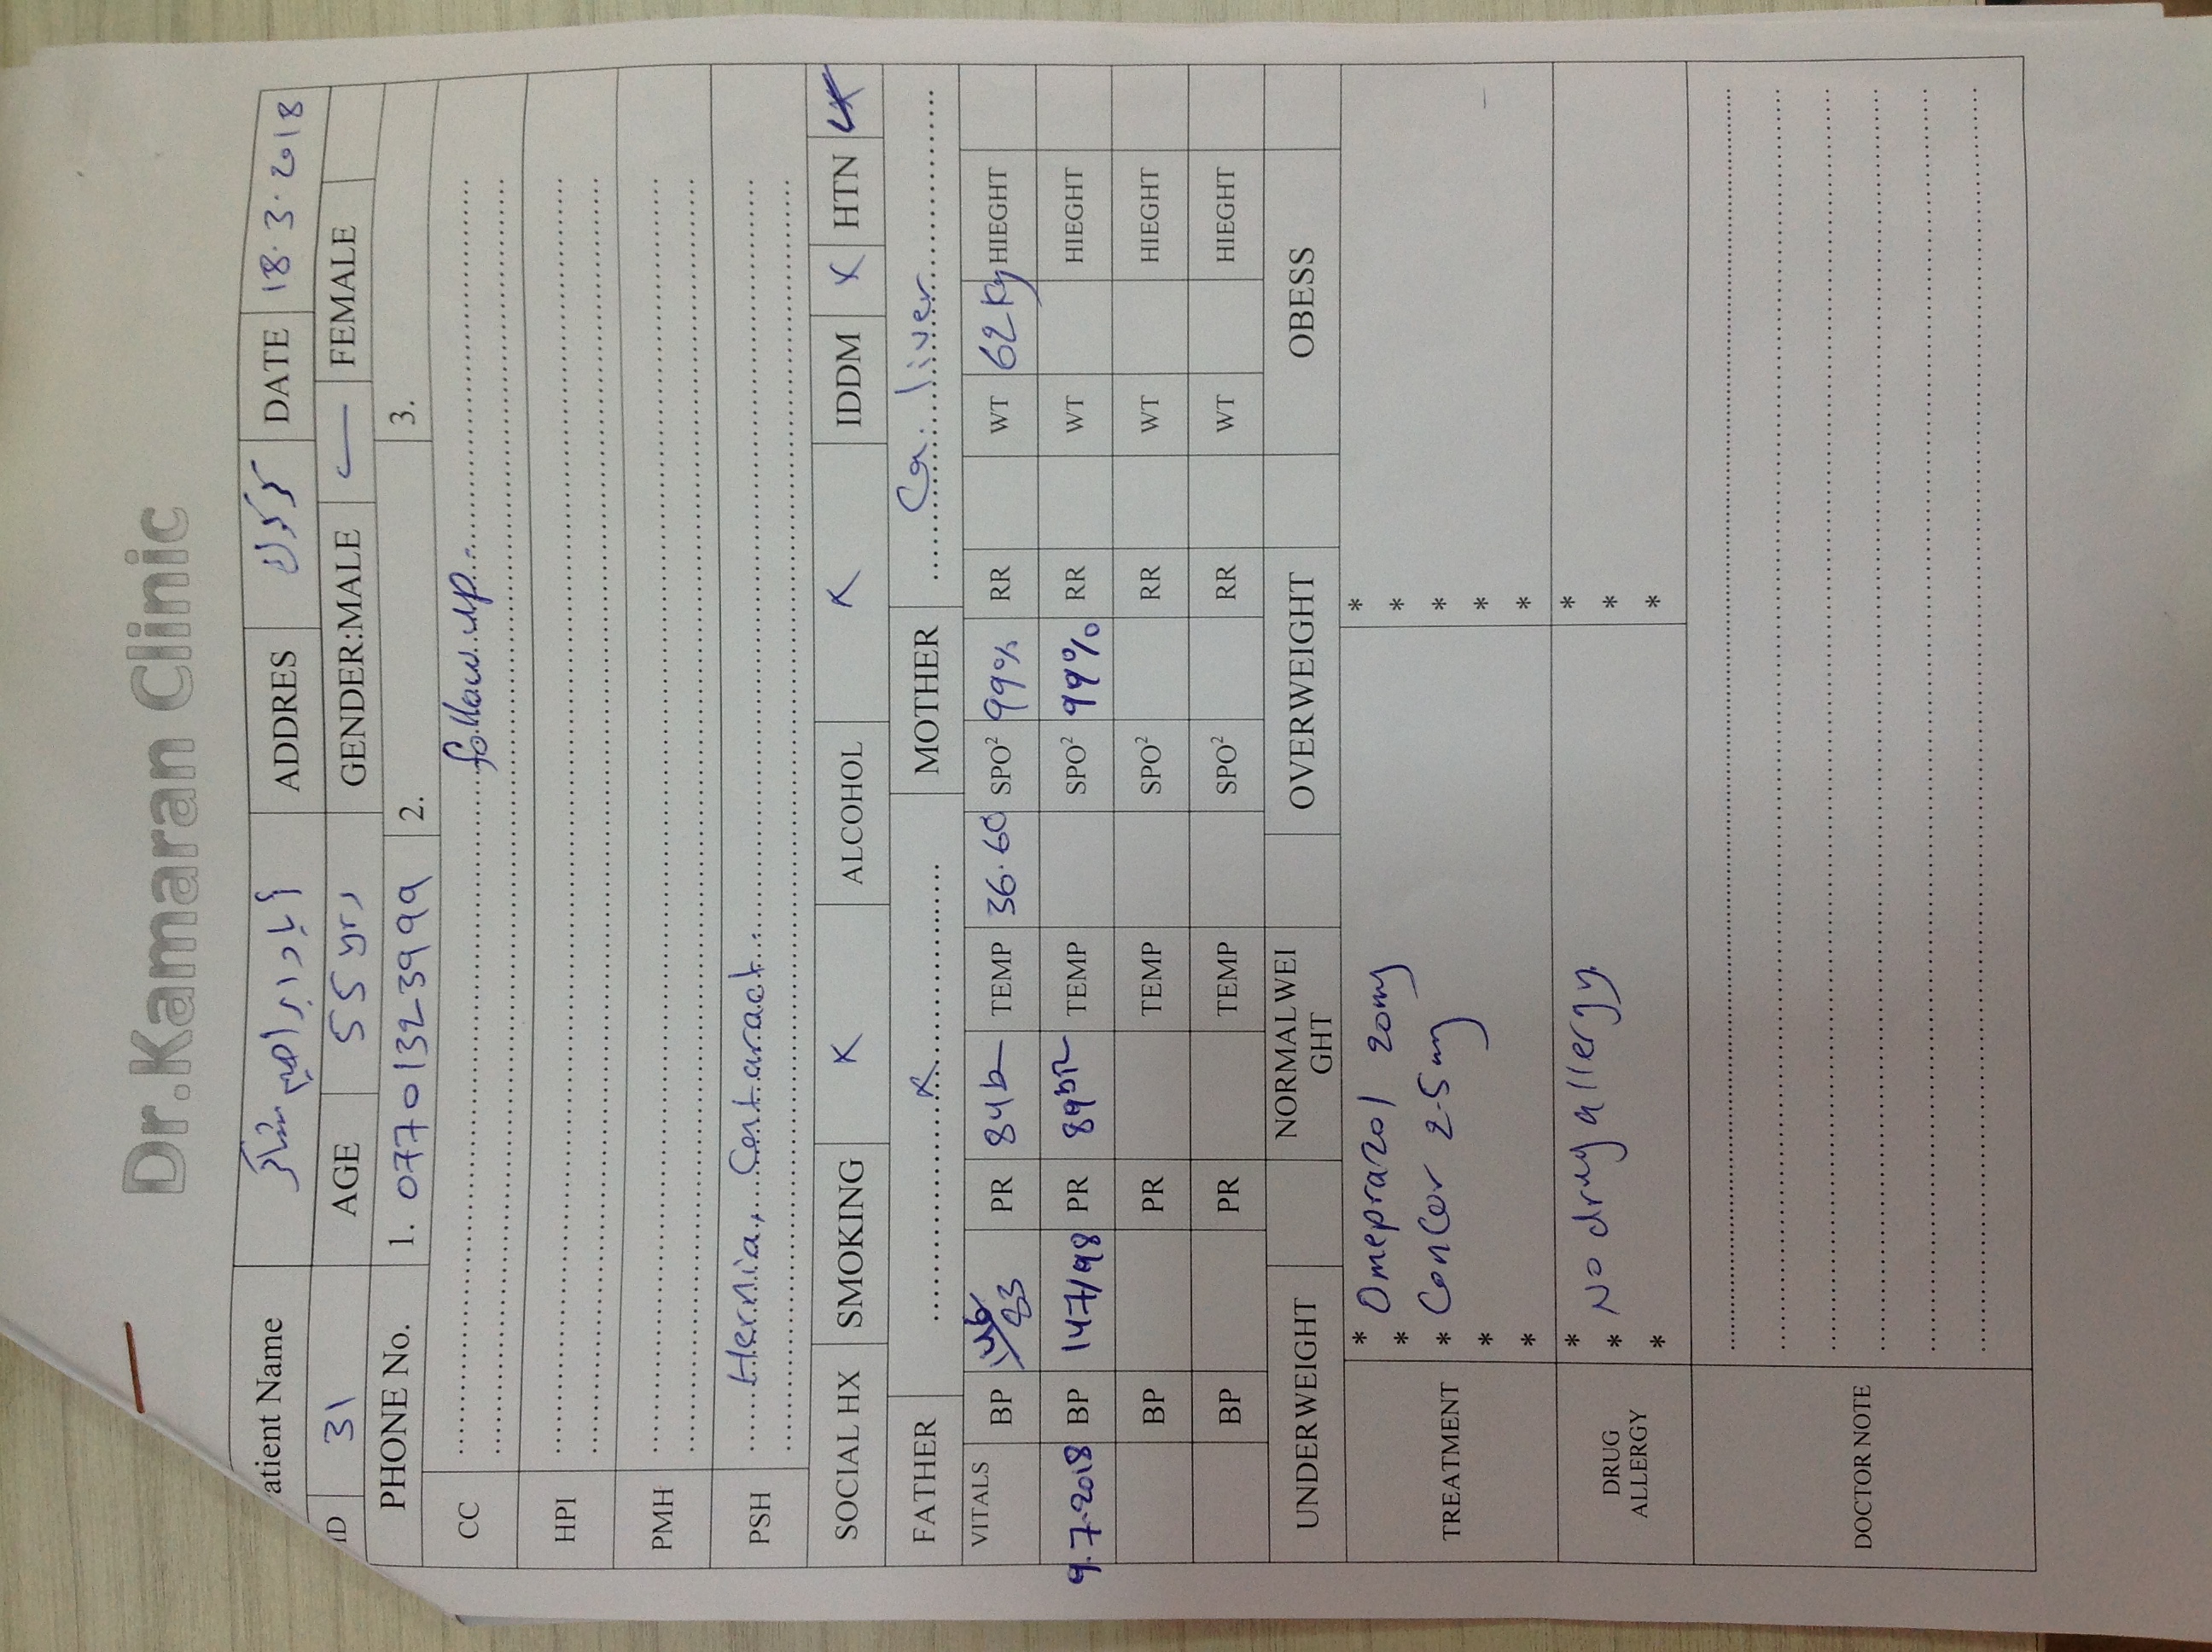 Dr.Kamaran Clinic
atient Name ئاباد ابراهيم ADDRES DATE 18.3.2018
ID 31 AGE 55 yrs GENDER:MALE FEMALE
PHONE No. 1. 07701323999 2. 3.
CC follow up
HPI
PMH
PSH Hernia, Cataract
SOCIAL HX SMOKING X ALCOHOL X IDDM X HTN
FATHER X MOTHER Ca. liver
VITALS BP PR 84b TEMP 36.6 SPO² 99% RR WT 62 kg HIEGHT
9.7.2018 BP 147/98 PR 89bP TEMP SPO² 99% RR WT HIEGHT
BP PR TEMP SPO² RR WT HIEGHT
BP PR TEMP SPO² RR WT HIEGHT
UNDERWEIGHT NORMALWEI GHT OVERWEIGHT OBESS
TREATMENT * Omeprazol 20mg *
* *
* Concor 2.5mg *
* *
* *
DRUG ALLERGY * *
* No drug allergy. *
* *
DOCTOR NOTE